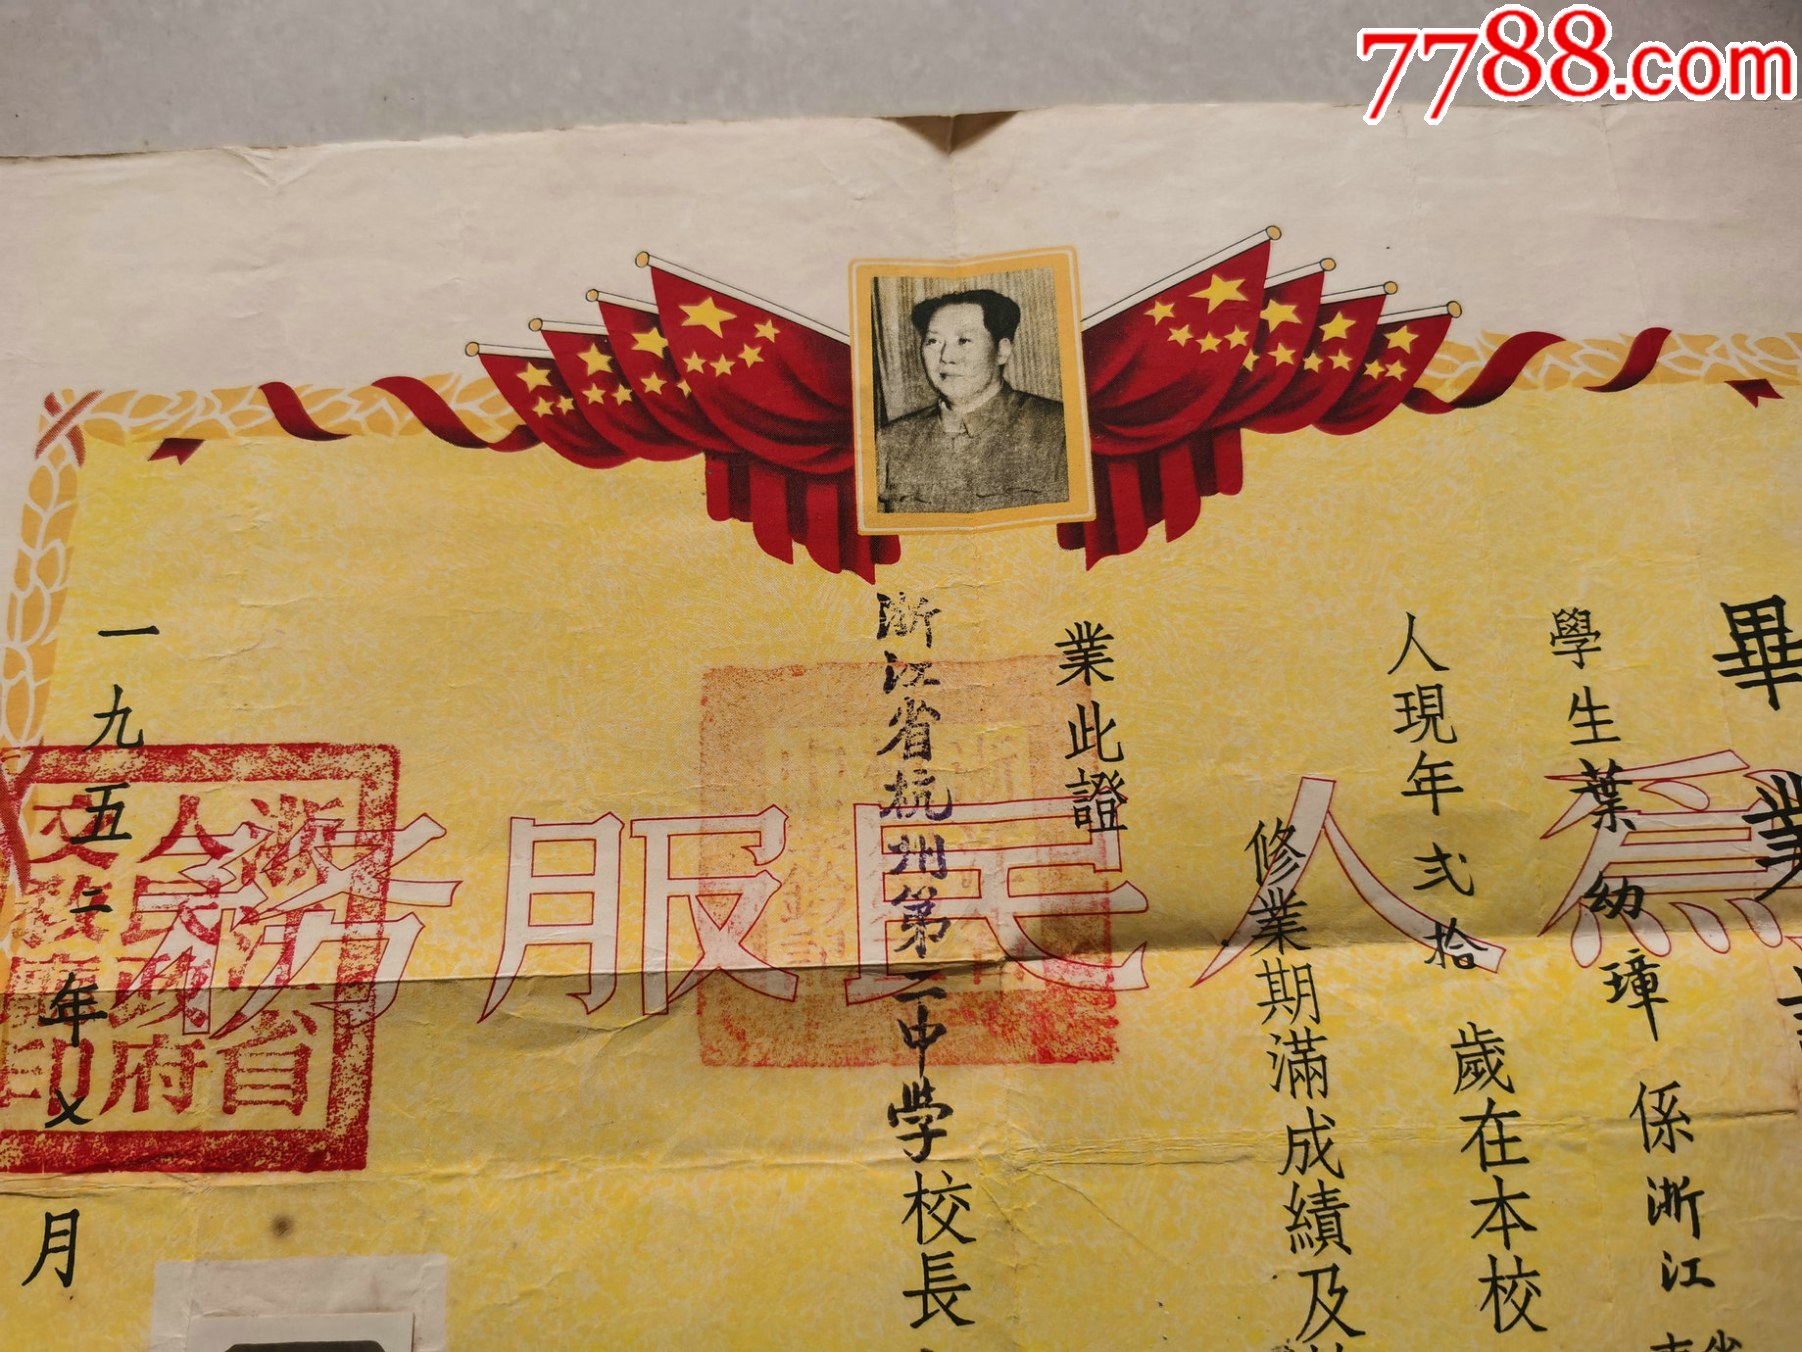 7788.com
畢業
學生葉幼璋係浙江省
人現年弍拾歲在本校
修業期滿成績及
業此證
浙江省杭州第二中學校長
一九五二年七月
為人民服務
浙江省
人民政府
文教廳印